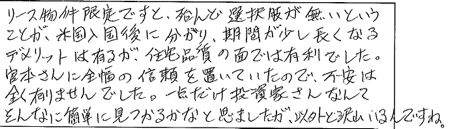 リース物件限定ですと、殆んど選択肢が無いという
ことが、米国入国後に分かり、期間が少し長くなる
デメリットは有るが、住宅品質の面では有利でした。
宮本さんに全幅の信頼を置いていたので、不安は
全く有りませんでした。一点だけ投資家さんなんて
そんなに簡単に見つかるかなと思ましたが、以外と沢山いるんですね。